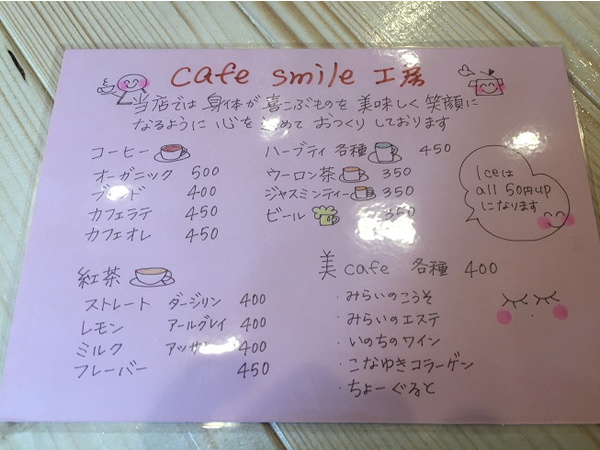 cafe smile 工房
当店では 身体が 喜こぶものを 美味しく 笑顔に
なるように 心を 込めて おつくり しております
コーヒー
オーガニック 500
ブレンド 400
カフェラテ 450
カフェオレ 450
紅茶
ストレート ダージリン 400
レモン アールグレイ 400
ミルク アッサム 400
フレーバー 450
ハーブティ 各種 450
ウーロン茶 350
ジャスミンティー 350
ビール 350
Iceは
all 50円up
になります
美 cafe 各種 400
・みらいのこうそ
・みらいのエステ
・いのちのワイン
・こなゆきコラーゲン
・ちょーぐると